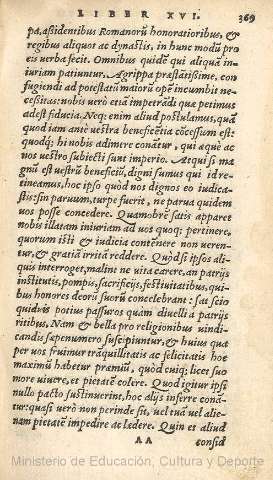 LIBER XVI. 369
pa, aßidentibus Romanorũ honoratioribus, &
regibus aliquot ac dynastis, in hunc modũ pro
eis verba fecit. Omnibus quidẽ qui aliquã in-
iuriam patiuntur, Agrippa præstãtißime, con
fugiendi ad potestatũ maiorũ opẽ incumbit ne
ceßitas: nobis verò etiã impetrãdi quæ petimus
adest fiducia. Neq; enim aliud postulamus, quã
quod iam ante vestra beneficẽtia cõcessum est:
quodq; hi nobis adimere conãtur, qui æquè ac
nos vestro subiecti sunt imperio. Atqui si ma
gnũ est vestrũ beneficiũ, digni sumus qui id re-
tineamus, hoc ipso quòd nos dignos eo iudica-
stis: sin paruum, turpe fuerit, ne parua quidem
vos posse concedere. Quamobrẽ satis apparet
nobis illatam iniuriam ad vos quoq; pertinere,
quorum isti & iudicia contẽnere non veren-
tur, & gratiã irritã reddere. Quòd si ipsos ali-
quis interroget, malint ne vita carere, an patrijs
institutis, pompis, sacrificijs, festiuitatibus, qui-
bus honores deorũ suorũ concelebrant: sat scio
quiduis potius passuros quam diuelli a patrijs
ritibus. Nam & bella pro religionibus vindi-
candis sæpenumero suscipiuntur, & huius quæ
per vos fruimur trãquillitatis ac felicitatis hoc
maximũ habetur præmiũ, quòd cuiq; licet suo
more viuere, et pietatẽ colere. Quod igitur ipsi
nullo pacto sustinuerint, hoc alijs inferre conã-
tur: quasi verò non perinde sit, vel tuã vel alie-
nam pietatẽ impedire ac lædere. Quin et aliud
AA consid
Ministerio de Educación, Cultura y Deporte